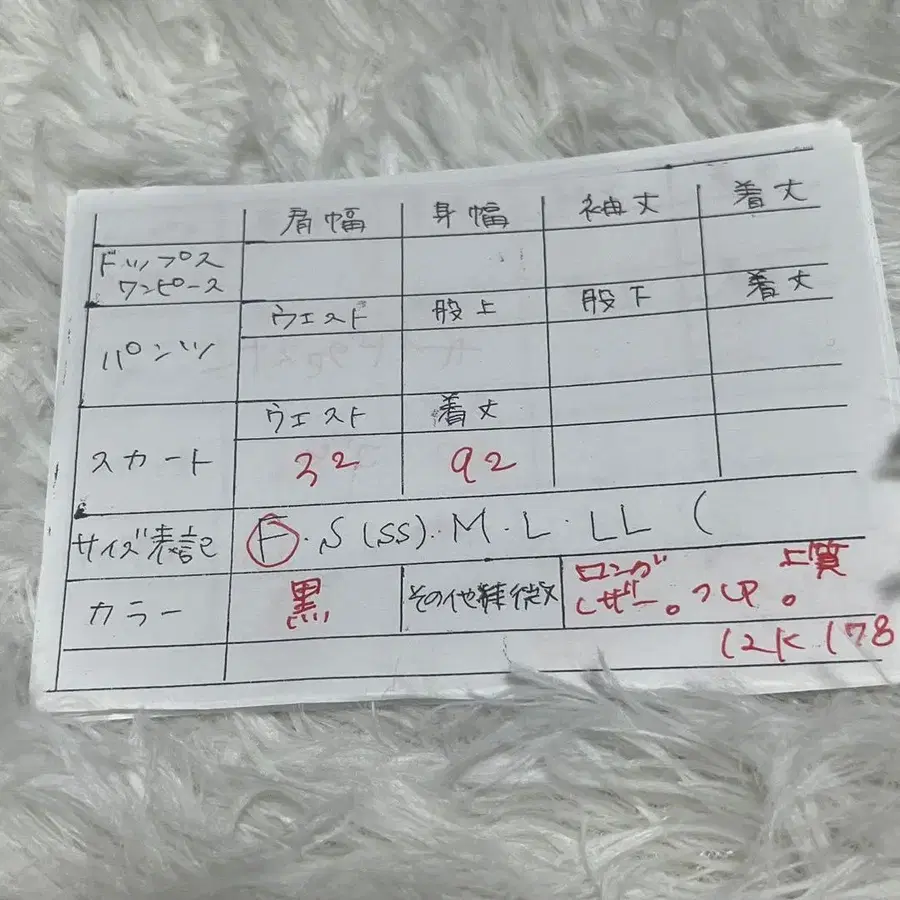 肩幅 身幅 袖丈 着丈
トップス
ワンピース
ウエスト 股上 股下 着丈
パンツ
ウエスト 着丈
スカート 32 92
サイズ表記 F・S(SS)・M・L・LL (
カラー 黒 その他特徴
ロング 上質
レザー。
12K178